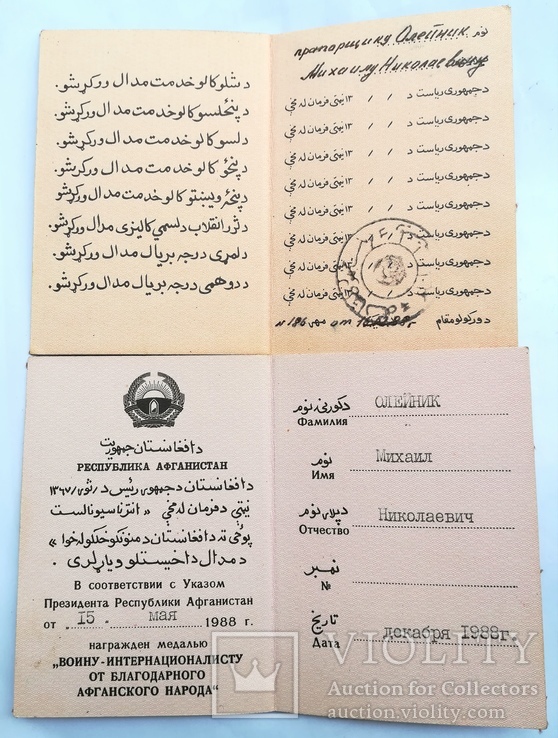 د شلو کالو خدمت مدال ورکړشو.
د پنځلسو کالو خدمت مدال ورکړشو.
د لسو کالو خدمت مدال ورکړشو.
د پنځو کالو خدمت مدال ورکړشو.
د پنځه ویشتو کالو خدمت مدال ورکړشو
د ثور انقلاب د لسمې کالیزی مدال ورکړشو.
د لمړی درجه بریال مدال ورکړشو.
د دوهمی درجه بریال مدال ورکړشو.
прапорщику Олейник نوم
Михаилу Николаевичу
د جمهوری ریاست د / / ۱۳ نیټی فرمان له مخې
د جمهوری ریاست د / / ۱۳ نیټی فرمان له مخې
د جمهوری ریاست د / / ۱۳ نیټی فرمان له مخې
د جمهوری ریاست د / / ۱۳ نیټی فرمان له مخې
د جمهوری ریاست د / / ۱۳ نیټی فرمان له مخې
د جمهوری ریاست
د جمهوری ریاست
د جمهوری ریاست د / / ۱۳ نیټی فرمان له مخې
د ورکولو مقام
مهر
№ 186 от
د افغانستان جمهوریت
РЕСПУБЛИКА АФГАНИСТАН
د افغانستان د جمهوری رئیس د / ثور / ۱۳۶۷
نیټې د فرمان له مخې « انترناسیونالست
پوځی ته د افغانستان د منونکو خلکو له خوا »
د مدال د اخیستلو ویاړ لری .
В соответствии с Указом
Президента Республики Афганистан
от 15. мая 1988 г.
награжден медалью
„ВОИНУ-ИНТЕРНАЦИОНАЛИСТУ
ОТ БЛАГОДАРНОГО
АФГАНСКОГО НАРОДА“
د کورنی نوم ОЛЕЙНИК
Фамилия
نوم Михаил
Имя
د پلار نوم Николаевич
Отчество
نمبر
№
تاریخ декабря 1988г.
Дата
VIOLITY
Auction for Collectors
auction.violity.com